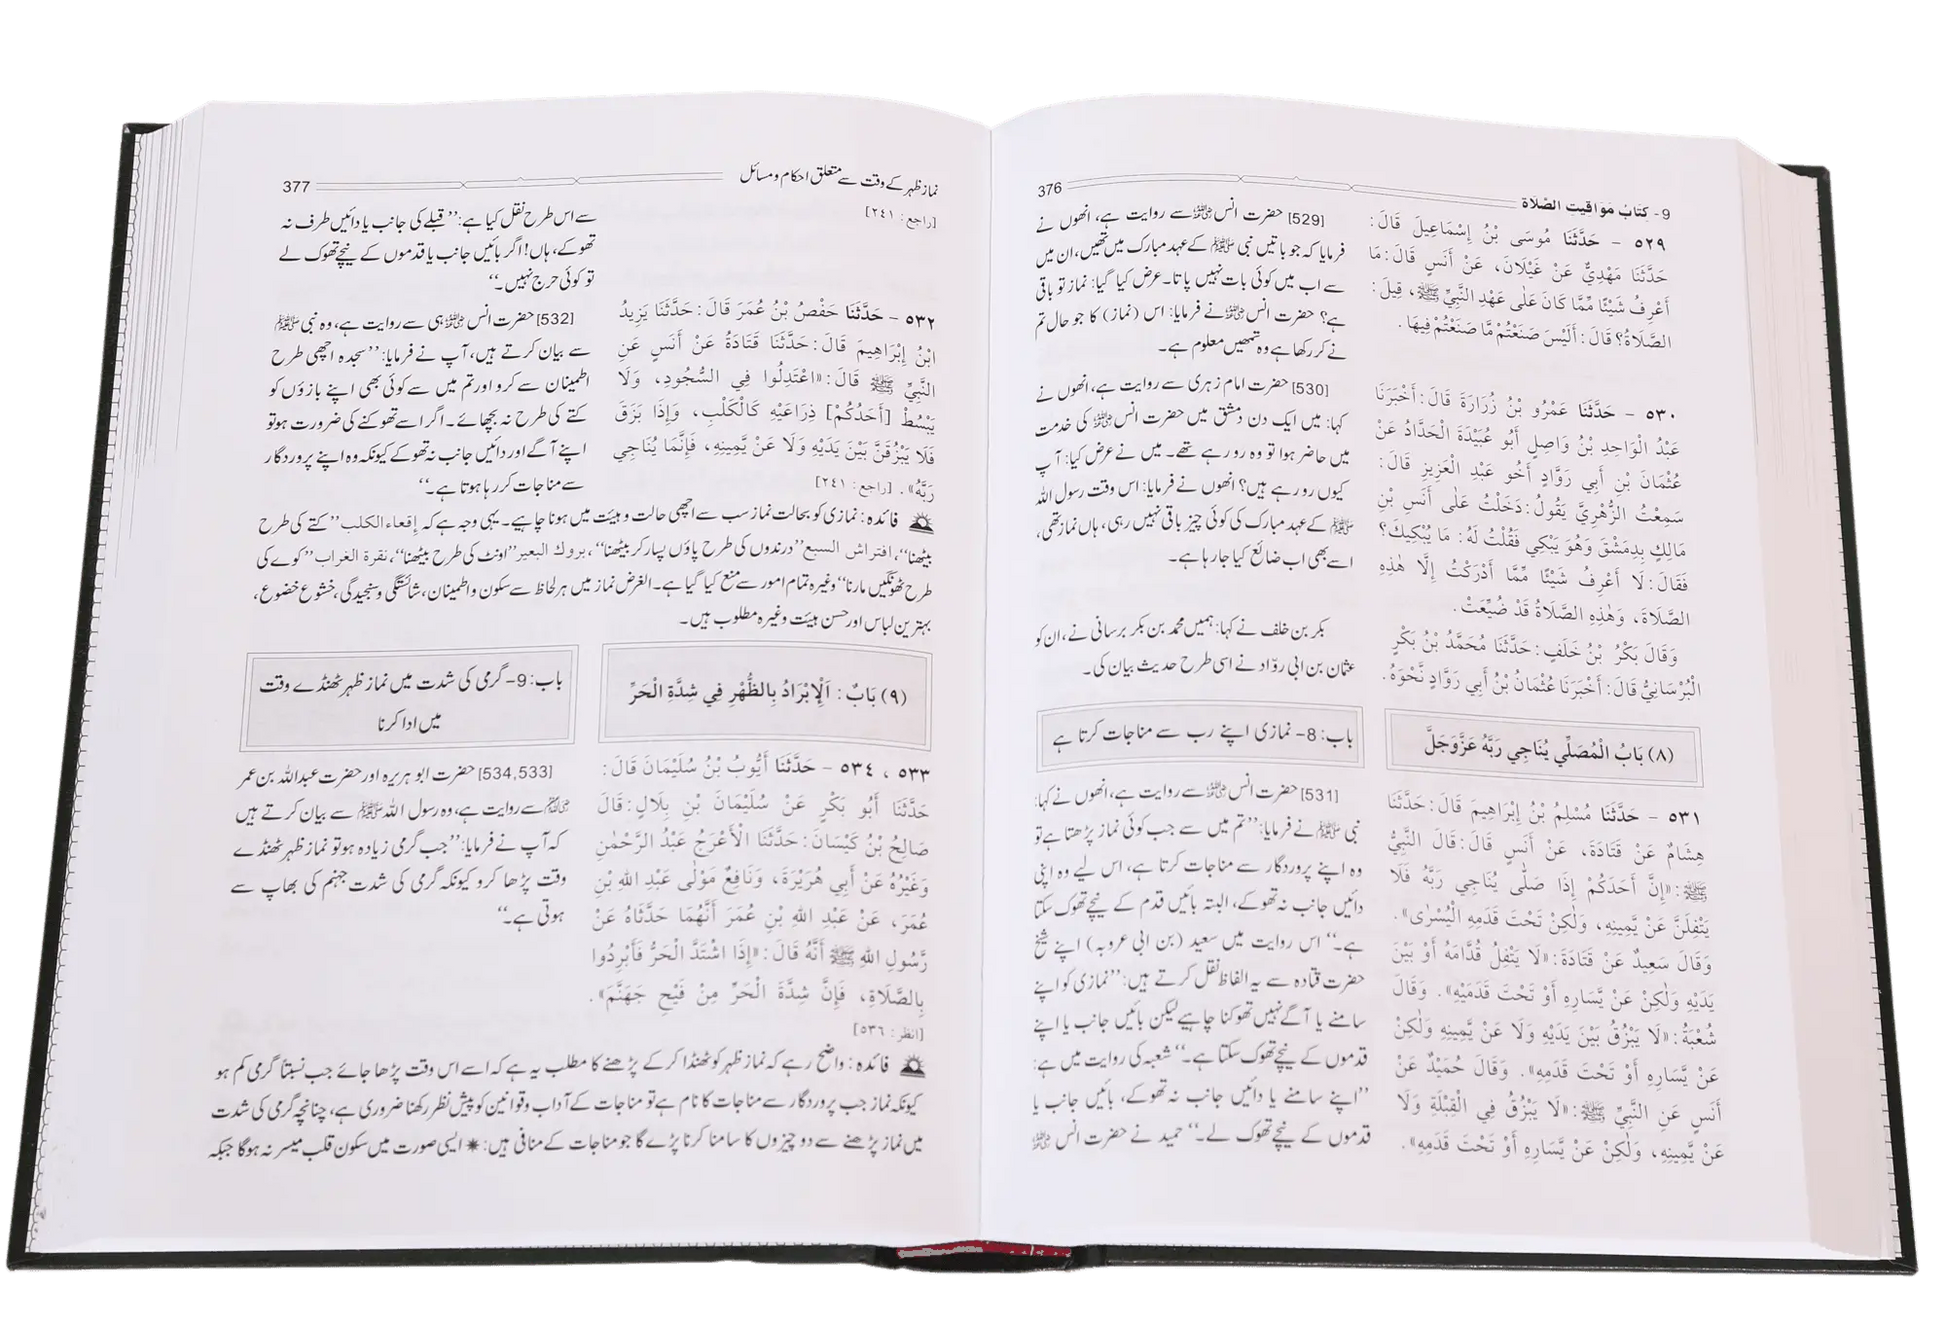 9- كتَابُ مَوَاقِيتِ الصَّلَاة
376
٥٢٩ - حَدَّثَنَا مُوسَى بْنُ إِسْمَاعِيلَ قَالَ:
حَدَّثَنَا مَهْدِيٌّ عَنْ غَيْلَانَ، عَنْ أَنَسٍ قَالَ: مَا
أَعْرِفُ شَيْئًا مِّمَّا كَانَ عَلٰى عَهْدِ النَّبِيِّ ﷺ، قِيلَ:
الصَّلَاةُ؟ قَالَ: أَلَيْسَ صَنَعْتُمْ مَّا صَنَعْتُمْ فِيهَا.
٥٣٠ - حَدَّثَنَا عَمْرُو بْنُ زُرَارَةَ قَالَ: أَخْبَرَنَا
عَبْدُ الْوَاحِدِ بْنُ وَاصِلٍ أَبُو عُبَيْدَةَ الْحَدَّادُ عَنْ
عُثْمَانَ بْنِ أَبِي رَوَّادٍ أَخُو عَبْدِ الْعَزِيزِ قَالَ:
سَمِعْتُ الزُّهْرِيَّ يَقُولُ: دَخَلْتُ عَلٰى أَنَسِ بْنِ
مَالِكٍ بِدِمَشْقَ وَهُوَ يَبْكِي فَقُلْتُ لَهُ: مَا يُبْكِيكَ؟
فَقَالَ: لَا أَعْرِفُ شَيْئًا مِّمَّا أَدْرَكْتُ إِلَّا هٰذِهِ
الصَّلَاةَ، وَهٰذِهِ الصَّلَاةُ قَدْ ضُيِّعَتْ.
وَقَالَ بَكْرُ بْنُ خَلَفٍ: حَدَّثَنَا مُحَمَّدُ بْنُ بَكْرٍ
الْبُرْسَانِيُّ قَالَ: أَخْبَرَنَا عُثْمَانُ بْنُ أَبِي رَوَّادٍ نَّحْوَهُ.
(٨) بَابُ الْمُصَلِّي يُنَاجِي رَبَّهُ عَزَّوَجَلَّ
٥٣١ - حَدَّثَنَا مُسْلِمُ بْنُ إِبْرَاهِيمَ قَالَ: حَدَّثَنَا
هِشَامٌ عَنْ قَتَادَةَ، عَنْ أَنَسٍ قَالَ: قَالَ النَّبِيُّ
ﷺ: «إِنَّ أَحَدَكُمْ إِذَا صَلَّى يُنَاجِي رَبَّهُ فَلَا
يَتْفِلَنَّ عَنْ يَّمِينِهِ، وَلٰكِنْ تَحْتَ قَدَمِهِ الْيُسْرٰى».
وَقَالَ سَعِيدٌ عَنْ قَتَادَةَ: «لَا يَتْفِلُ قُدَّامَهُ أَوْ بَيْنَ
يَدَيْهِ وَلٰكِنْ عَنْ يَّسَارِهِ أَوْ تَحْتَ قَدَمَيْهِ». وَقَالَ
شُعْبَةُ: «لَا يَبْزُقُ بَيْنَ يَدَيْهِ وَلَا عَنْ يَّمِينِهِ وَلٰكِنْ
عَنْ يَّسَارِهِ أَوْ تَحْتَ قَدَمِهِ». وَقَالَ حُمَيْدٌ عَنْ
أَنَسٍ عَنِ النَّبِيِّ ﷺ: «لَا يَبْزُقُ فِي الْقِبْلَةِ وَلَا
عَنْ يَّمِينِهِ، وَلٰكِنْ عَنْ يَّسَارِهِ أَوْ تَحْتَ قَدَمِهِ».
[529] حضرت انس ؓ سے روایت ہے، انھوں نے
فرمایا کہ جو باتیں نبی ﷺ کے عہد مبارک میں تھیں، ان میں
سے اب میں کوئی بات نہیں پاتا۔ عرض کیا گیا: نماز تو باقی
ہے؟ حضرت انس ؓ نے فرمایا: اس (نماز) کا جو حال تم
نے کر رکھا ہے وہ تمھیں معلوم ہے۔
[530] حضرت امام زہری سے روایت ہے، انھوں نے
کہا: میں ایک دن دمشق میں حضرت انس ؓ کی خدمت
میں حاضر ہوا تو وہ رو رہے تھے۔ میں نے عرض کیا: آپ
کیوں رو رہے ہیں؟ انھوں نے فرمایا: اس وقت رسول اللہ
ﷺ کے عہد مبارک کی کوئی چیز باقی نہیں رہی، ہاں نماز تھی،
اسے بھی اب ضائع کیا جا رہا ہے۔
بکر بن خلف نے کہا: ہمیں محمد بن بکر برسانی نے، ان کو
عثمان بن ابی روّاد نے اسی طرح حدیث بیان کی۔
باب: 8- نمازی اپنے رب سے مناجات کرتا ہے
[531] حضرت انس ؓ سے روایت ہے، انھوں نے کہا:
نبی ﷺ نے فرمایا: ”تم میں سے جب کوئی نماز پڑھتا ہے تو
وہ اپنے پروردگار سے مناجات کرتا ہے، اس لیے وہ اپنی
دائیں جانب نہ تھوکے، البتہ بائیں قدم کے نیچے تھوک سکتا
ہے۔“ اس روایت میں سعید (بن ابی عروبہ) اپنے شیخ
حضرت قتادہ سے یہ الفاظ نقل کرتے ہیں: ”نمازی کو اپنے
سامنے یا آگے نہیں تھوکنا چاہیے لیکن بائیں جانب یا اپنے
قدموں کے نیچے تھوک سکتا ہے۔“ شعبہ کی روایت میں ہے:
”اپنے سامنے یا دائیں جانب نہ تھوکے، بائیں جانب یا
قدموں کے نیچے تھوک لے۔“ حمید نے حضرت انس ؓ
نماز ظہر کے وقت سے متعلق احکام و مسائل
377
[راجع: ٢٤١]
٥٣٢ - حَدَّثَنَا حَفْصُ بْنُ عُمَرَ قَالَ: حَدَّثَنَا يَزِيدُ
ابْنُ إِبْرَاهِيمَ قَالَ: حَدَّثَنَا قَتَادَةُ عَنْ أَنَسٍ عَنِ
النَّبِيِّ ﷺ قَالَ: «اعْتَدِلُوا فِي السُّجُودِ، وَلَا
يَبْسُطْ [أَحَدُكُمْ] ذِرَاعَيْهِ كَالْكَلْبِ، وَإِذَا بَزَقَ
فَلَا يَبْزُقَنَّ بَيْنَ يَدَيْهِ وَلَا عَنْ يَّمِينِهِ، فَإِنَّمَا يُنَاجِي
رَبَّهُ». [راجع: ٢٤١]
سے اس طرح نقل کیا ہے: ”قبلے کی جانب یا دائیں طرف نہ
تھوکے، ہاں! اگر بائیں جانب یا قدموں کے نیچے تھوک لے
تو کوئی حرج نہیں۔“
[532] حضرت انس ؓ ہی سے روایت ہے، وہ نبی ﷺ
سے بیان کرتے ہیں، آپ نے فرمایا: ”سجدہ اچھی طرح
اطمینان سے کرو اور تم میں سے کوئی بھی اپنے بازؤں کو
کتے کی طرح نہ بچھائے۔ اگر اسے تھوکنے کی ضرورت ہو تو
اپنے آگے اور دائیں جانب نہ تھوکے کیونکہ وہ اپنے پروردگار
سے مناجات کر رہا ہوتا ہے۔“
فائدہ: نمازی کو بحالت نماز سب سے اچھی حالت و ہیئت میں ہونا چاہیے۔ یہی وجہ ہے کہ إقعاء الكلب ”کتے کی طرح
بیٹھنا“، افتراش السبع ”درندوں کی طرح پاؤں پسار کر بیٹھنا“، بروك البعير ”اونٹ کی طرح بیٹھنا“، نقرة الغراب ”کوے کی
طرح ٹھونگیں مارنا“ وغیرہ تمام امور سے منع کیا گیا ہے۔ الغرض نماز میں ہر لحاظ سے سکون و اطمینان، شائستگی و سنجیدگی، خشوع خضوع،
بہترین لباس اور حسن ہیئت وغیرہ مطلوب ہیں۔
(٩) بَابٌ: اَلْإِبْرَادُ بِالظُّهْرِ فِي شِدَّةِ الْحَرِّ
باب: 9- گرمی کی شدت میں نماز ظہر ٹھنڈے وقت
میں ادا کرنا
٥٣٣، ٥٣٤ - حَدَّثَنَا أَيُّوبُ بْنُ سُلَيْمَانَ قَالَ:
حَدَّثَنَا أَبُو بَكْرٍ عَنْ سُلَيْمَانَ بْنِ بِلَالٍ: قَالَ
صَالِحُ بْنُ كَيْسَانَ: حَدَّثَنَا الْأَعْرَجُ عَبْدُ الرَّحْمٰنِ
وَغَيْرُهُ عَنْ أَبِي هُرَيْرَةَ، وَنَافِعٌ مَوْلٰى عَبْدِ اللهِ بْنِ
عُمَرَ، عَنْ عَبْدِ اللهِ بْنِ عُمَرَ أَنَّهُمَا حَدَّثَاهُ عَنْ
رَّسُولِ اللهِ ﷺ أَنَّهُ قَالَ: «إِذَا اشْتَدَّ الْحَرُّ فَأَبْرِدُوا
بِالصَّلَاةِ، فَإِنَّ شِدَّةَ الْحَرِّ مِنْ فَيْحِ جَهَنَّمَ».
[انظر: ٥٣٦]
[534,533] حضرت ابو ہریرہ اور حضرت عبداللہ بن عمر
ؓ سے روایت ہے، وہ رسول اللہ ﷺ سے بیان کرتے ہیں
کہ آپ نے فرمایا: ”جب گرمی زیادہ ہو تو نماز ظہر ٹھنڈے
وقت پڑھا کرو کیونکہ گرمی کی شدت جہنم کی بھاپ سے
ہوتی ہے۔“
فائدہ: واضح رہے کہ نماز ظہر کو ٹھنڈا کر کے پڑھنے کا مطلب یہ ہے کہ اسے اس وقت پڑھا جائے جب نسبتاً گرمی کم ہو
کیونکہ نماز جب پروردگار سے مناجات کا نام ہے تو مناجات کے آداب و قوانین کو پیش نظر رکھنا ضروری ہے، چنانچہ گرمی کی شدت
میں نماز پڑھنے سے دو چیزوں کا سامنا کرنا پڑے گا جو مناجات کے منافی ہیں: ✷ ایسی صورت میں سکون قلب میسر نہ ہوگا جبکہ